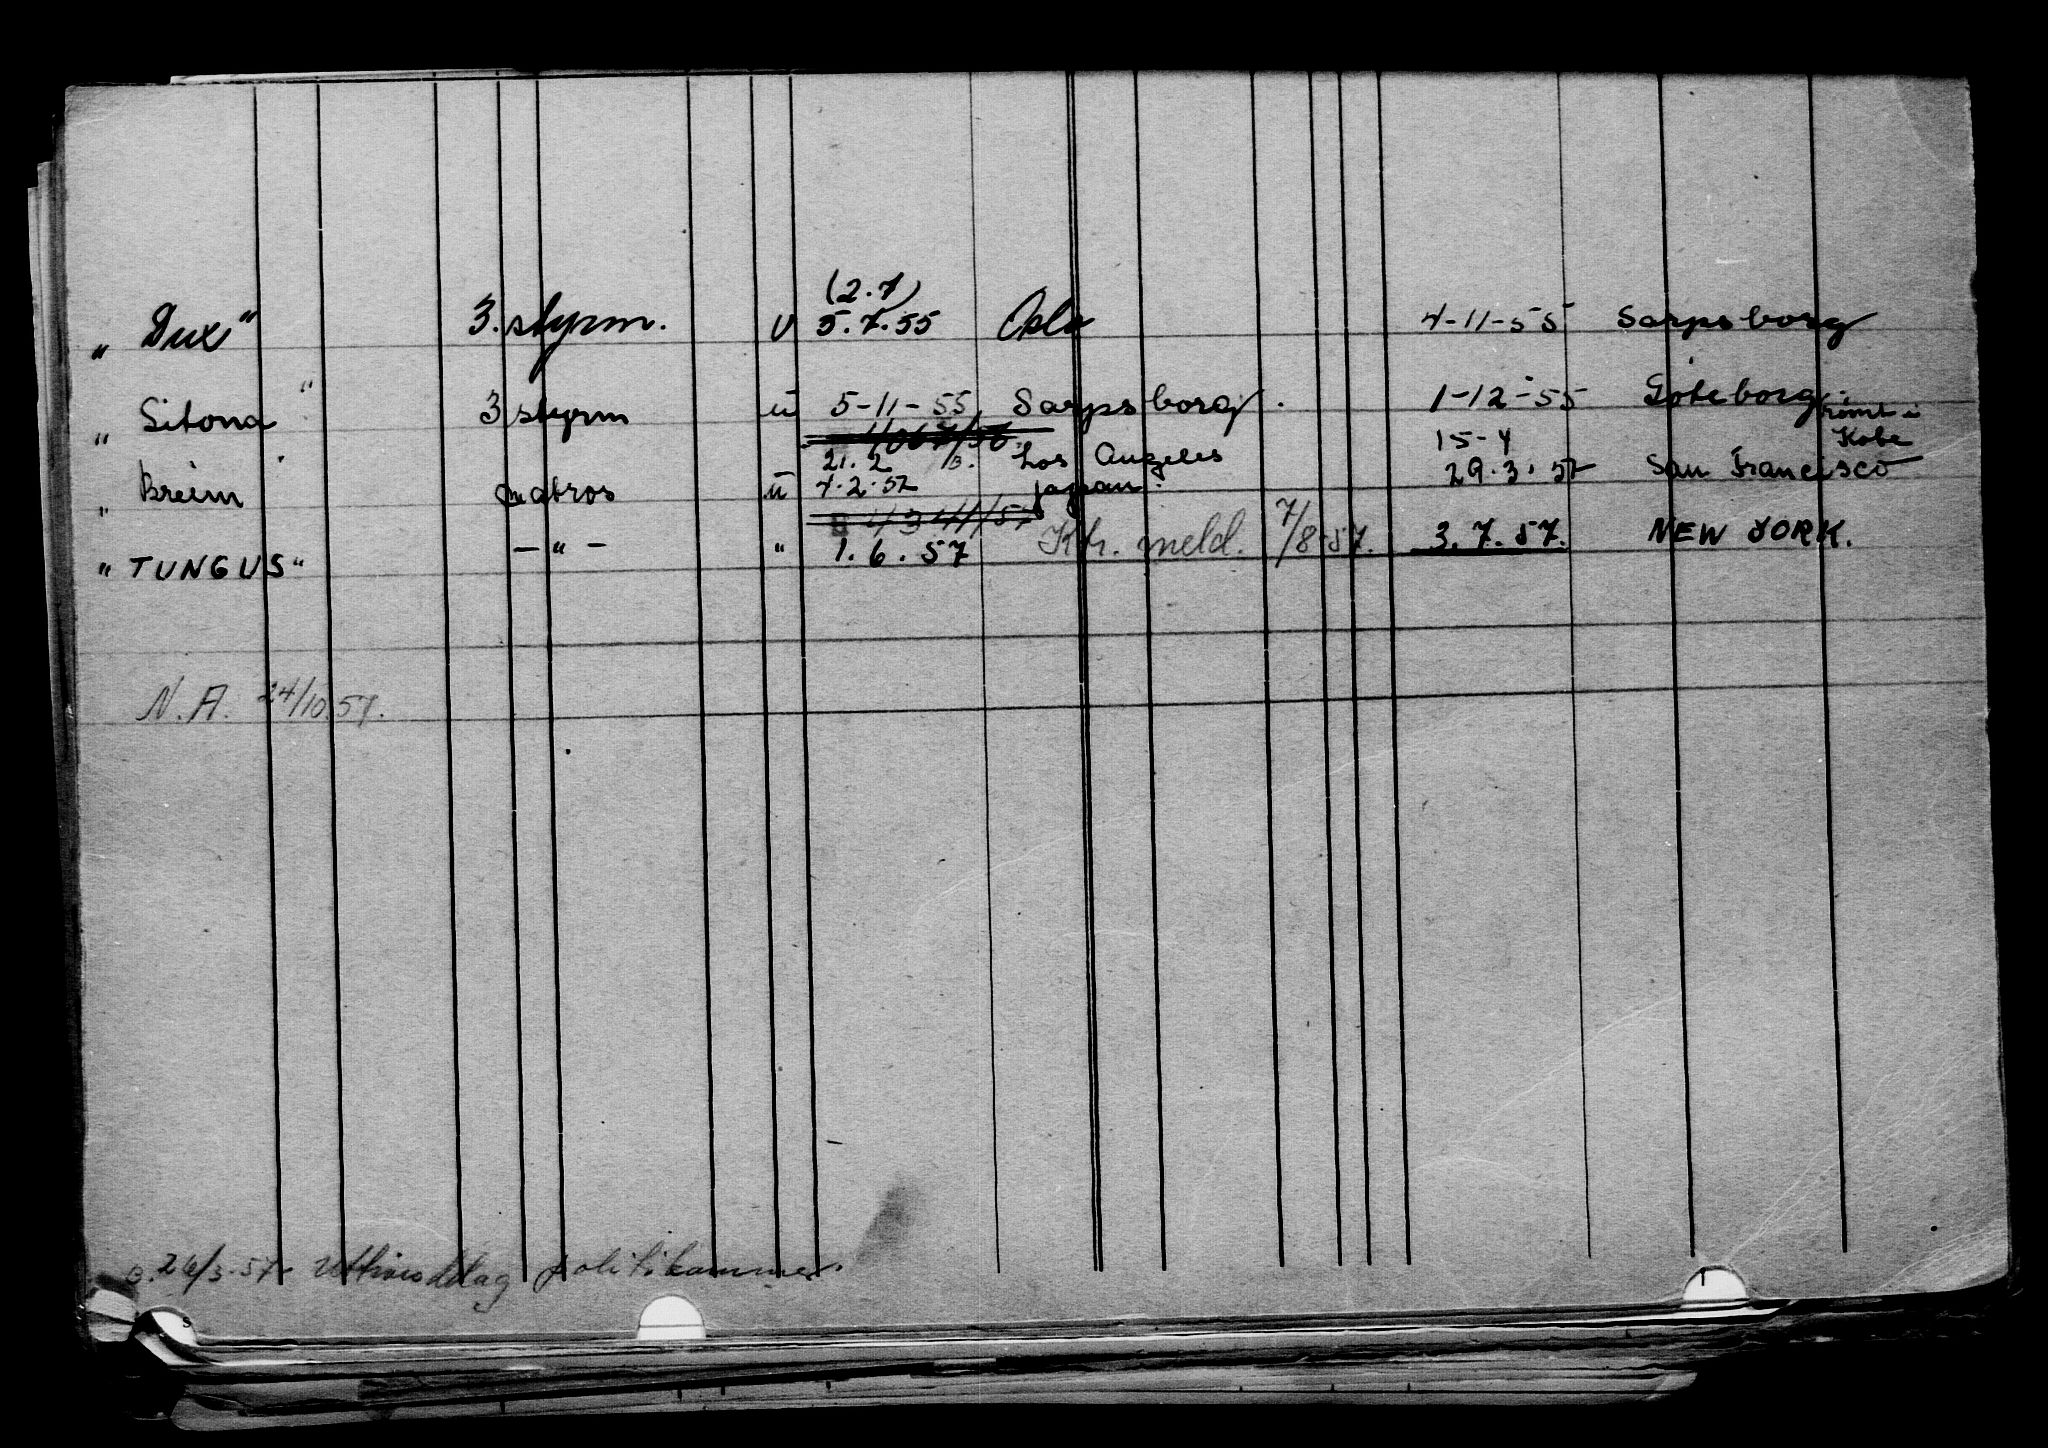 (2.7)
„Dux" 3. styrm. u 5.7.55 Oslo 4-11-55 Sarpsborg
„Sitona" 3 styrm u 5-11-55 Sarpsborg. 1-12-55 Göteborg
rømt i
21.2 Los Angeles 15-4 Kobe
„Breim" matros u 4.2.57 Japan. 29.3.57 San Francisco
"TUNGUS" —"— " 1.6.57 Kh. meld. 7/8-57. 3.7.57. NEW YORK.
N.A. 24/10.57.
26/3.57 politikammer.